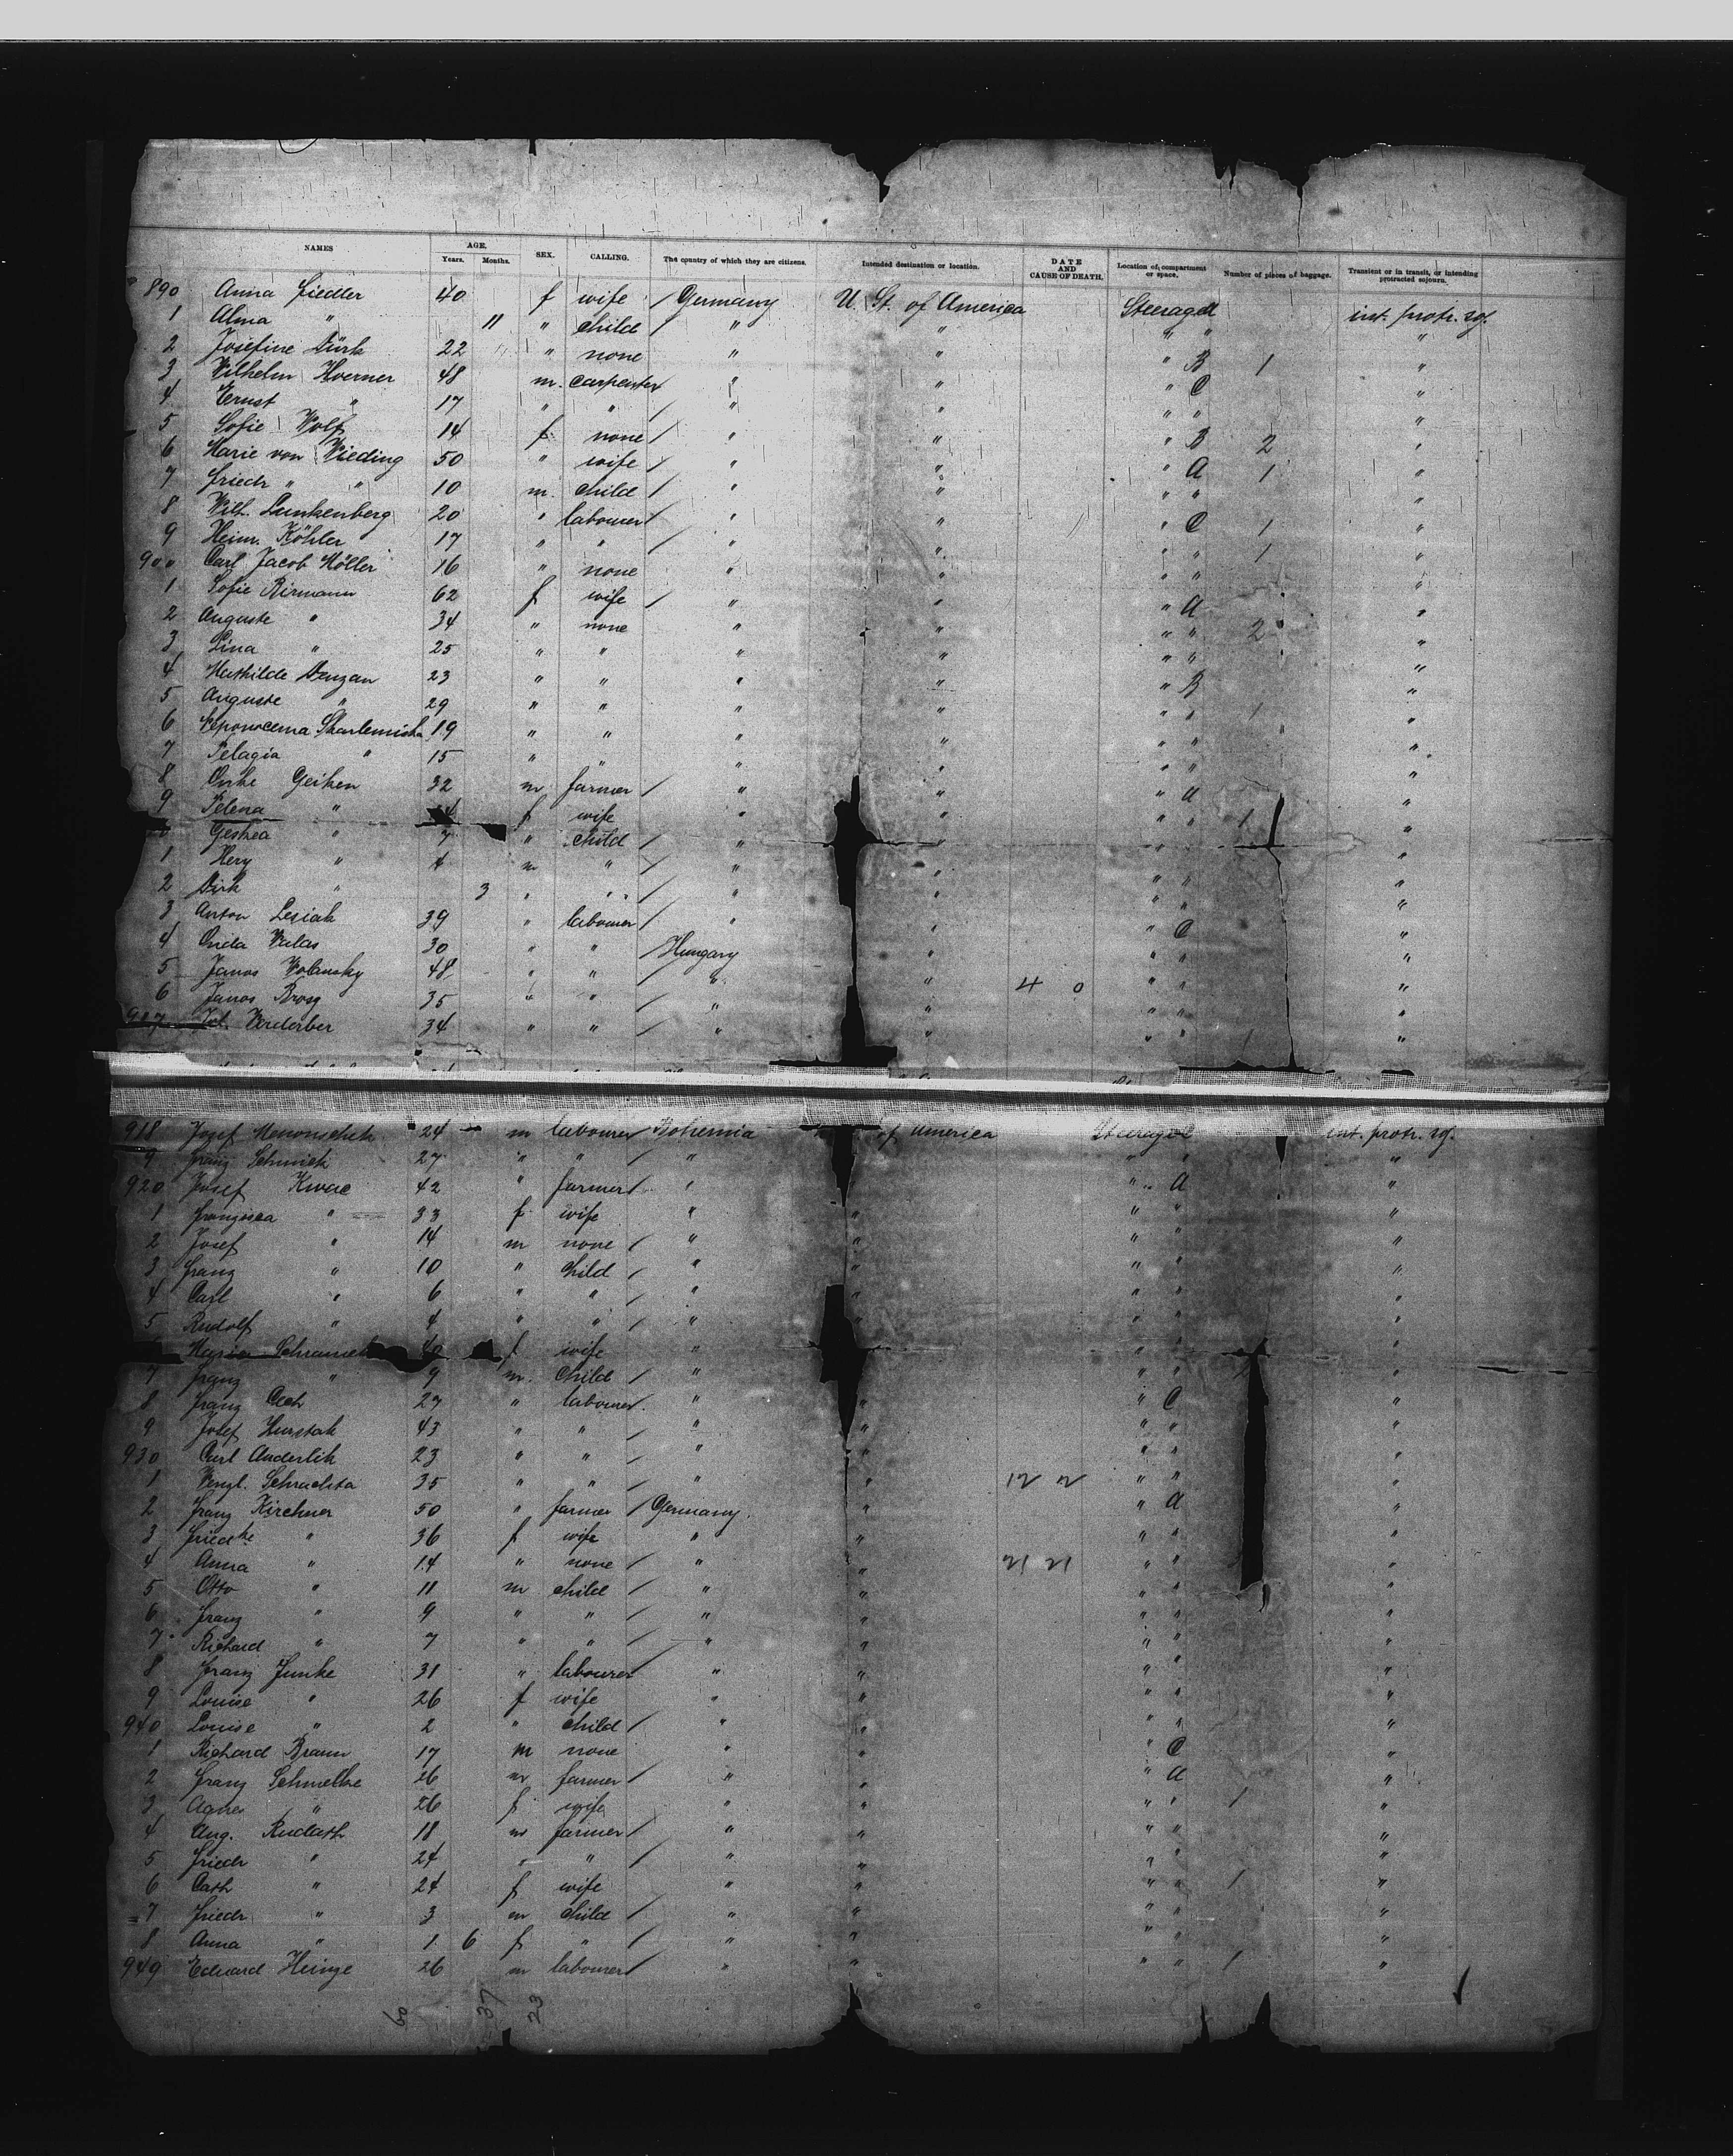 NAMES AGE. Years. Months. SEX. CALLING. The country of which they are citizens. Intended destination or location. DATE AND CAUSE OF DEATH. Location of compartment or space. Number of pieces of baggage. Transient or in transit, or intending protracted sojourn.
890 Anna Fiedler 40 f wife / Germany U. St. of America Steerage a int. protr. soj.
1 Alma " 11 " child / " " " " "
2 Josefine Dürk 22 " none " " " B 1 "
3 Wilhelm Hoerner 48 m. carpenter " " " C "
4 Ernst " 17 " " / " " " " "
5 Sofie Wolf 14 f. none / " " " B 2 "
6 Marie von Wieding 50 " wife / " " " A 1 "
7 Friedr " " 10 m. child / " " " " "
8 Wilh. Lunkenberg 20 " labourer / " " " C 1 "
9 Heinr. Köhler 17 " " / " " " " 1 "
900 Carl Jacob Möller 16 " none " " " " "
1 Sofie Rirmann 62 f wife / " " " A "
2 Auguste " 34 " none " " " " 2 "
3 Lina " 25 " " " " " " "
4 Mathilde 23 " " " " " B "
5 Auguste " 29 " " " " " " 1 "
6 19 " " " " " " "
7 Pelagia " 15 " " " " " " "
8 Geiken 32 m farmer / " " " A "
9 " f wife " " " 1 "
Geshea " 7 " child / " " " " "
1 Hery " 4 m " / " " " " "
2 Dirk " 3 " " / " " " " "
3 Anton Lesiak 39 " labourer / " " " C "
4 Valas 30 " " / Hungary " " " "
5 Janos Wolansky 48 " " / " " 4 0 " " "
6 Janos Brosz 35 " " / " " " " "
917 Jos. Verderber 34 " " / " " " " 1 "
918 Josef 24 m labourer Bohemia of America Steerage int. protr. soj.
9 Franz Schmiek 27 " " / " " " "
920 Josef Kwac 42 " farmer / " " A "
1 Franzisca " 33 f wife " " " " "
2 Josef " 14 m none / " " " " "
3 Franz " 10 " child / " " " " "
4 Carl " 6 " " / " " " " "
5 Rudolf " 4 " " / " " " " "
Maria Schramek 40 f wife " " " "
7 Franz " 9 m. child / " " " "
8 Franz Cech 27 " labourer " " " C "
9 Josef Hurstak 43 " " / " " " " "
930 Carl Anderlik 23 " " / " " " " "
1 Wenzl. Schruchta 35 " " / " " 12 2 " " "
2 Franz Kirchner 50 " farmer / Germany. " " A "
3 Friedke " 36 f wife " " " " "
4 Anna " 14 " none / " " 21 21 " " "
5 Otto " 11 m child / " " " " "
6 Franz " 9 " " / " " " " "
7 Richard " 7 " " / " " " " "
8 Franz Junke 31 " labourer / " " " " "
9 Louise " 26 f wife " " " " "
940 Louise " 2 " child / " " " " "
1 Richard Braun 17 m none " " " C "
2 Franz Schmelke 26 m farmer / " " " A "
3 Agnes " 26 f wife " " " " 1 "
4 Aug. Rudath 18 m farmer / " " " " "
5 Friedr " 24 " " / " " " " "
6 Cath " 24 f wife " " " " 1 "
7 Friedr " 3 m child / " " " " "
8 Anna " 1 6 f " / " " " " "
949 Eduard Heinze 26 m labourer / " " " " 1 "
60 37 23